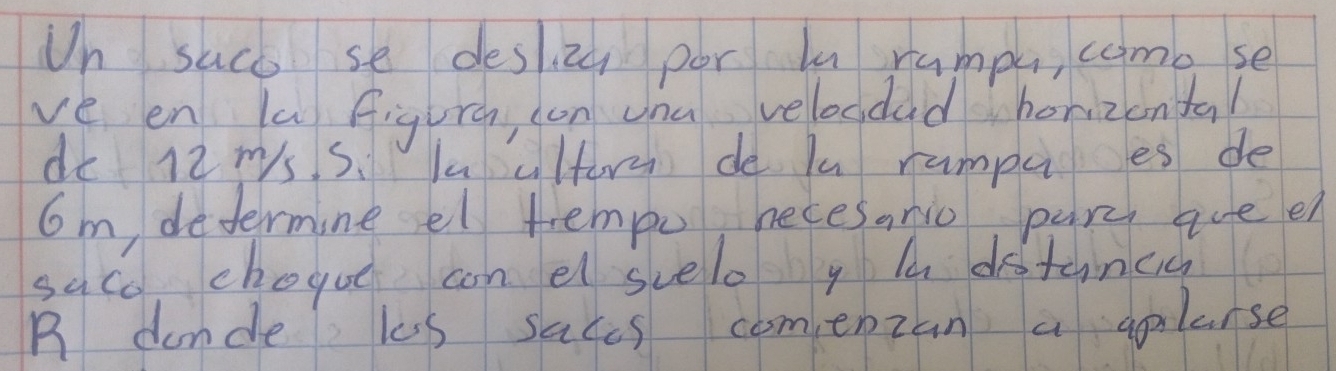 Un saco se desliza por la rampa, como se
ve en la figura, con una velocidad horizontal
de 12 m/s. Si la altura de la rampa es de
6m, determine el tiempo necesario para que el
saco choque con el suelo y la distancia
R donde los sacos comienzan a apilarse